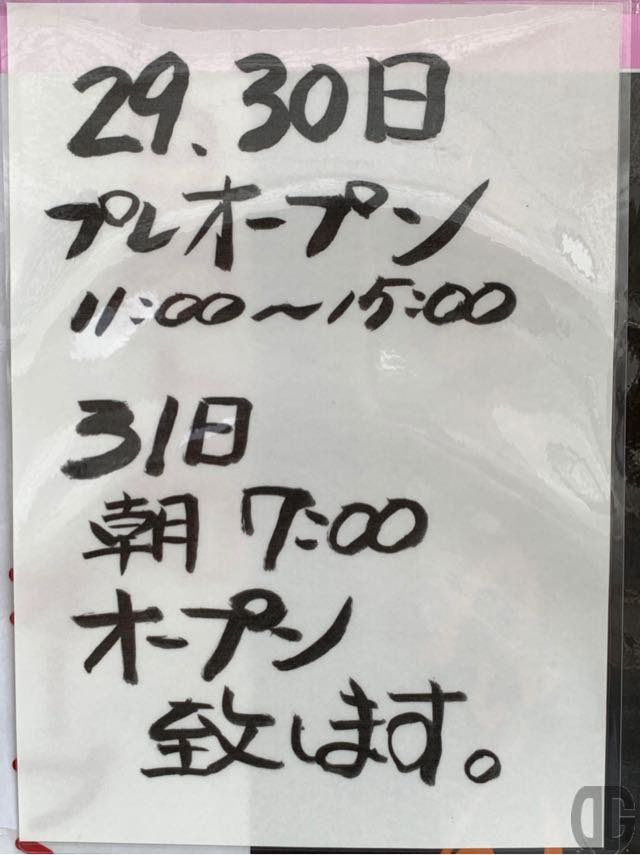 29、30日
プレオープン
11:00〜15:00
31日
朝 7:00
オープン
致します。